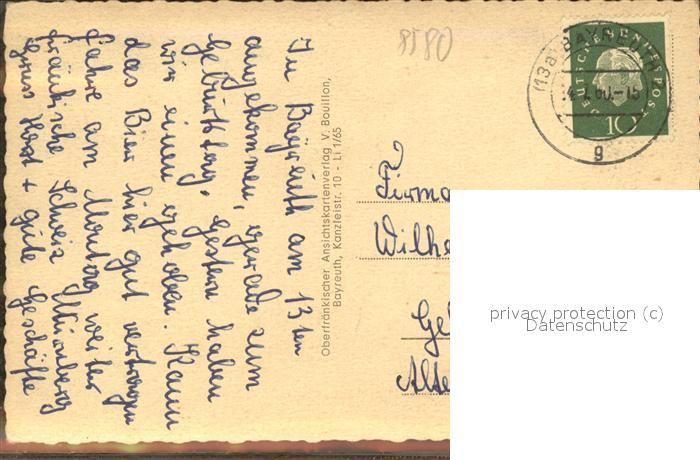 In Bayreuth am 13ten
angekommen, gerade zum
Geburtstag. Gestern haben
wir einen gehoben. Kann
das Bier hier gut vertragen
fahre am Montag weiter
fränkische Schweiz Nürnberg
Gruss Horst + gute Geschäfte
Oberfränkischer Ansichtskartenverlag V. Bouillon,
Bayreuth, Kanzleistr. 10 - Li 1/65
8580
(13a) BAYREUTH
60.-15
g
DEUTSCHE BUNDESPOST
10
Firma
Wilhe
Gel
Alte
privacy protection (c)
Datenschutz